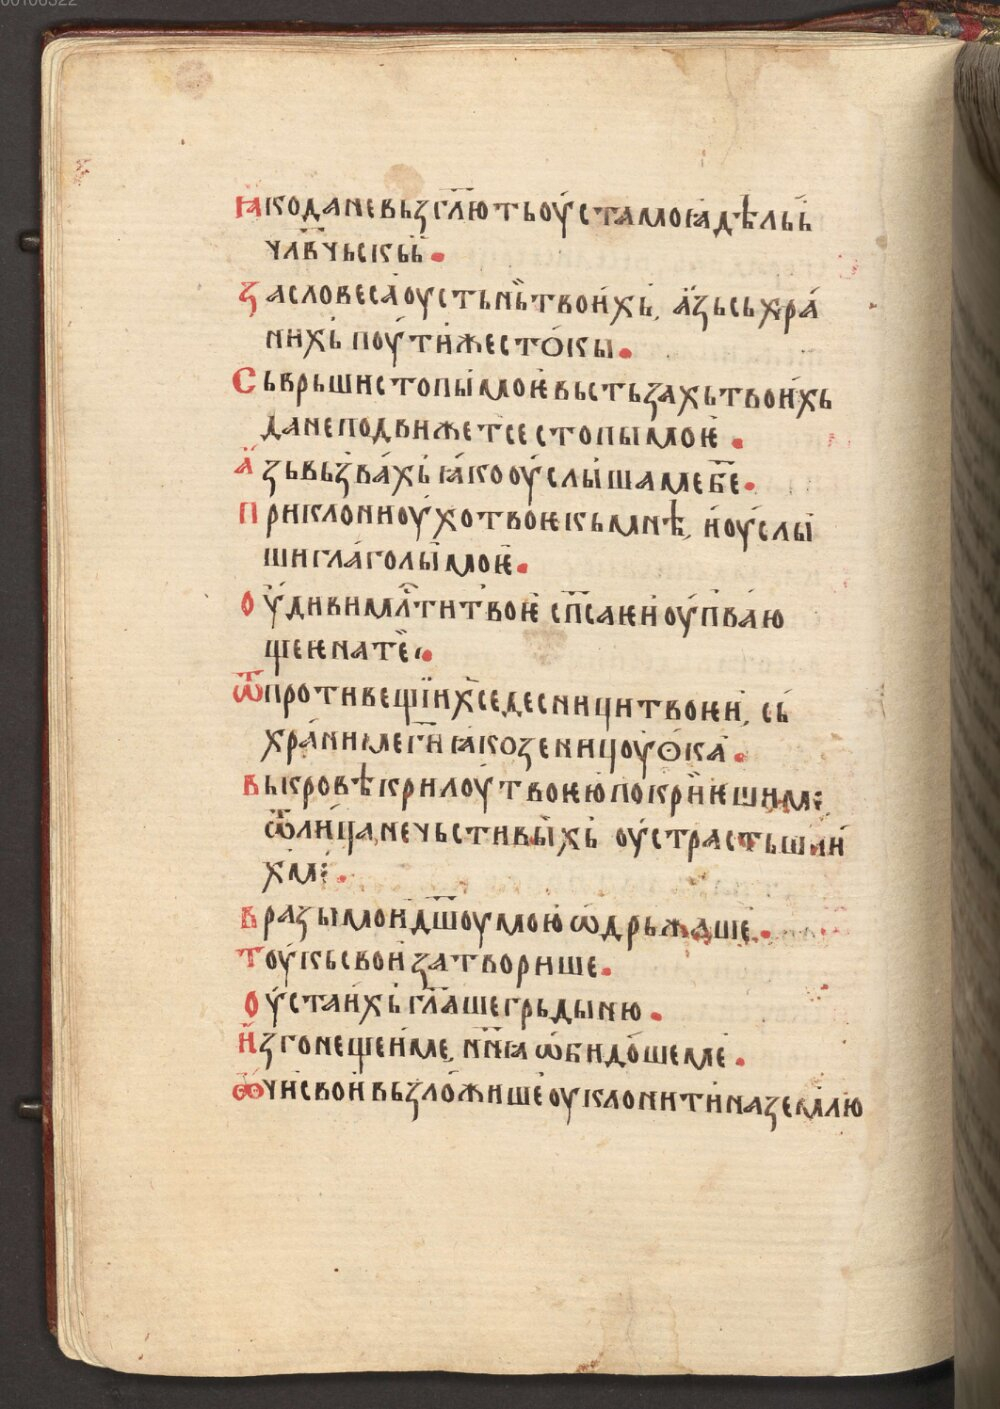 Ꙗкоданевьзгл҃ютьоу́стамоꙗдѣльы̏
члв҃чьскьы̏.
Ꙁасловеса̀оустьн̏ьтвои́хь̀, а҆́зьсьхра́
нихь̀ поу́ти́жесто́кы.
Сьврьшистопы̀мое҆вьстьзахьтвои́хь
данеподвижет̏сестопымоѥ̀.
А҆́зьвьзва́хь̀ ꙗ҆́кооу҆́слы́шамебж҃е.
Приклониоу́хотвоѥкьмнѣ, и҆оу́слы̀
шигла́голы̀моѥ̀.
Оу҆́дивимлⷭ҇титвоѥ̀ сп҃саѥи҆оу҆пва́ю
щеѥнате̏.
Ѿпротивещїихседесницитвоѥи̏, сь̀
хра́нимегн҃ ꙗкозеницоуѻ҆ка̀.
Вькровѣкрилоу́твоѥюпокрїи̏ѥшиме҆
ѿлица̀нечьстивы̏хь̀ оу҆страстьшаи́
хме҆.
Вразымои҆дш҃оумою̀ѡ҆дрьжаше҆.
Тоу́кьсвои҆затворише.
Оу҆стаи́хь̀гл҃ашегрьдыню.
И҆згонещеи҆ме, нн҃ꙗѡ҆бидо́шеме.
Ѻчи҆свои҆вьзло́жишѐоуклонити́наземлю